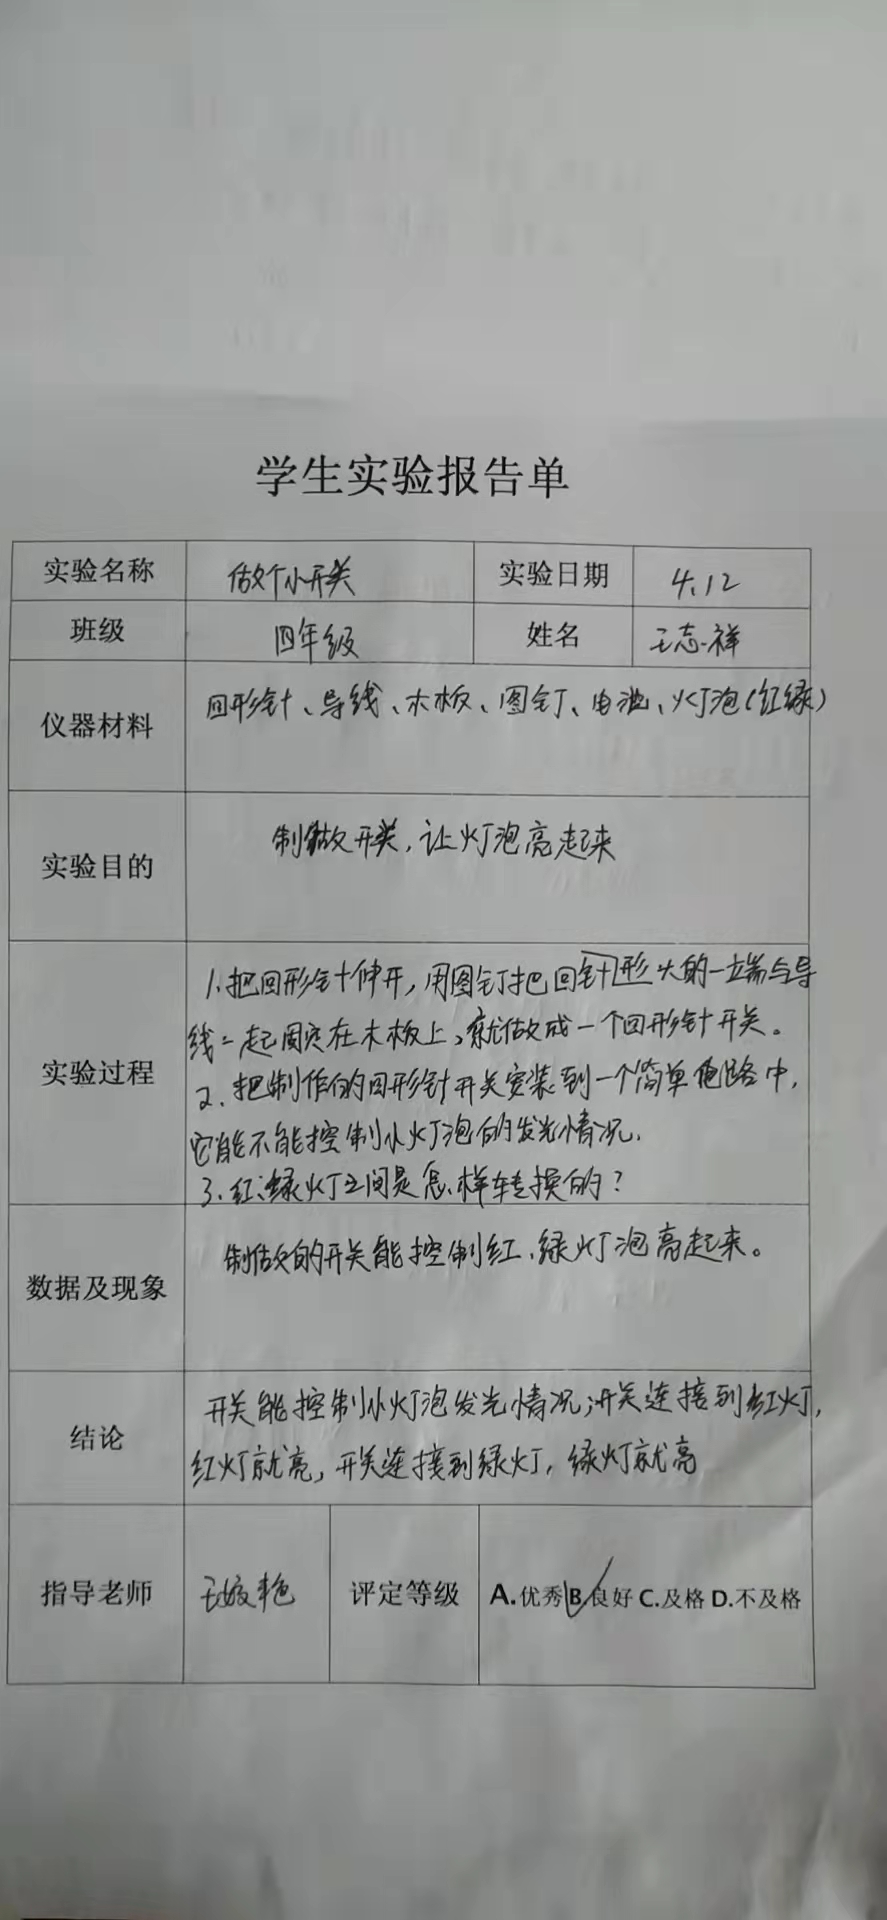 学生实验报告单
实验名称 做个小开关 实验日期 4.12
班级 四年级 姓名 王志祥
仪器材料 回形针、导线、木板、图钉、电池、灯泡(红绿)
实验目的 制做开关,让灯泡亮起来
实验过程
1.把回形针伸开,用图钉把回针形的一端与导
线一起固定在木板上,就做成一个回形针开关。
2.把制作的回形针开关安装到一个简单电路中,
它能不能控制小灯泡的发光情况.
3.红、绿灯之间是怎样转换的?
数据及现象 制做的开关能控制红、绿灯泡亮起来。
结论 开关能控制小灯泡发光情况;开关连接到红灯,
红灯就亮,开关连接到绿灯,绿灯就亮
指导老师 王 艳 评定等级 A.优秀 B.良好 C.及格 D.不及格